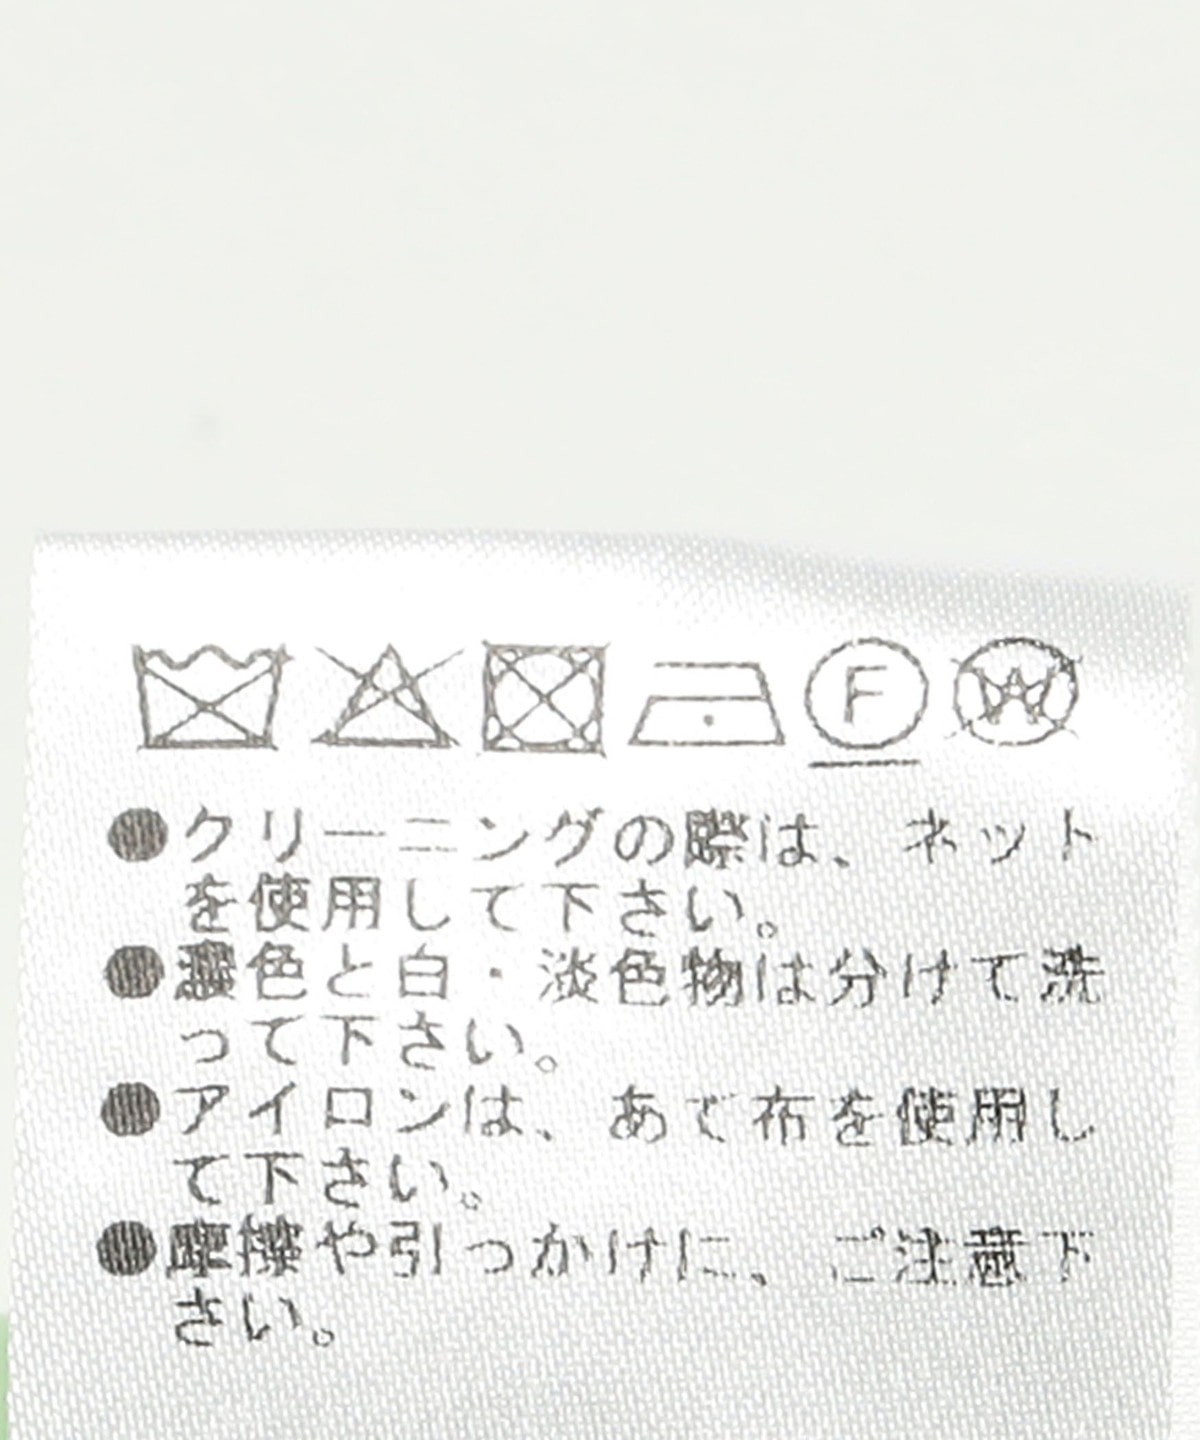 F W
●クリーニングの際は、ネット
を使用して下さい。
●濃色と白・淡色物は分けて洗
って下さい。
●アイロンは、あて布を使用し
て下さい。
●摩擦や引っかけに、ご注意下
さい。